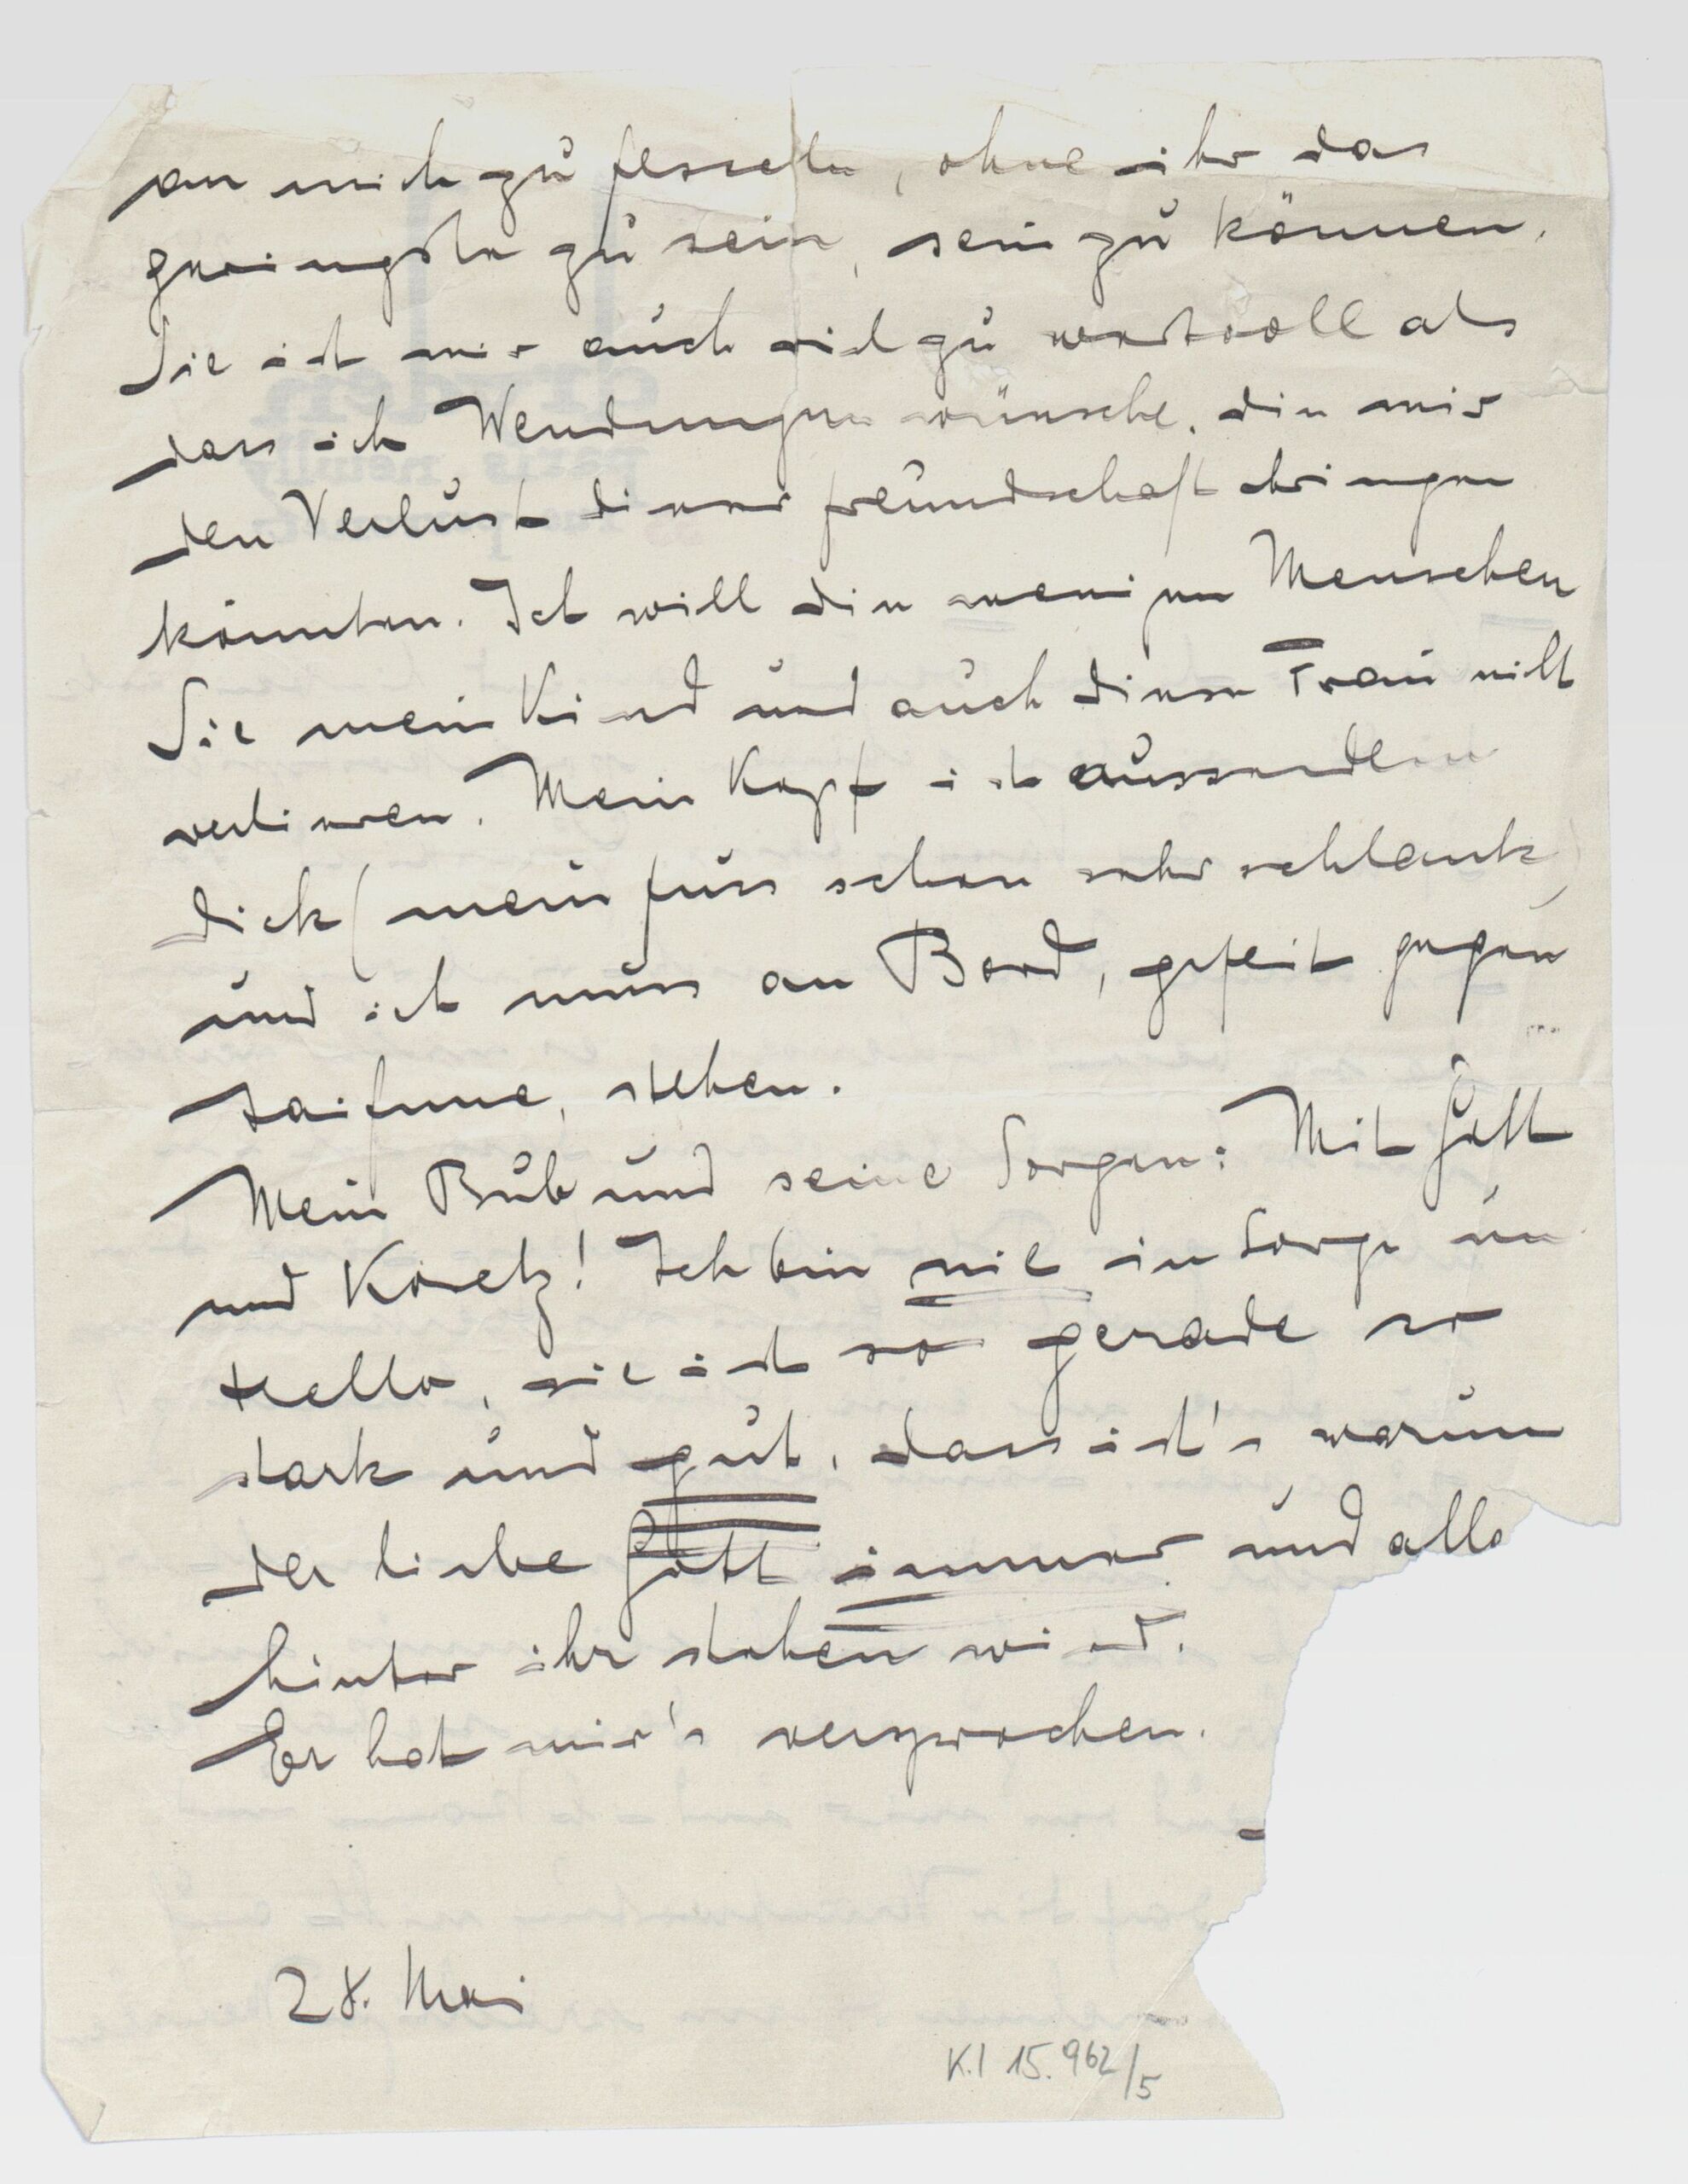 an mich zu fesseln, ohne ihr das
geringste zu sein, sein zu können.
Sie ist mir auch viel zu wertvoll als
dass ich Wendungen wünsche, die mir
den Verlust dieser Freundschaft bringen
könnten. Ich will die wenigen Menschen
Sie mein Kind und auch diese Frau nicht
verlieren. Mein Kopf ist ausserdem
dick (mein Fuss schon sehr schlank)
und ich muss an Bord, gefeit gegen
Taifune, stehen.
Mein Bub und seine Sorgen: Mit Gott
und Koretz! Ich bin nie in Sorge um
Hella, sie ist so gerade so
stark und gut, dass ist's warum
der liebe Gott immer und alle
hinter ihr stehen wird.
Er hat mir's versprochen.
28. Mai
K.I 15.962/5